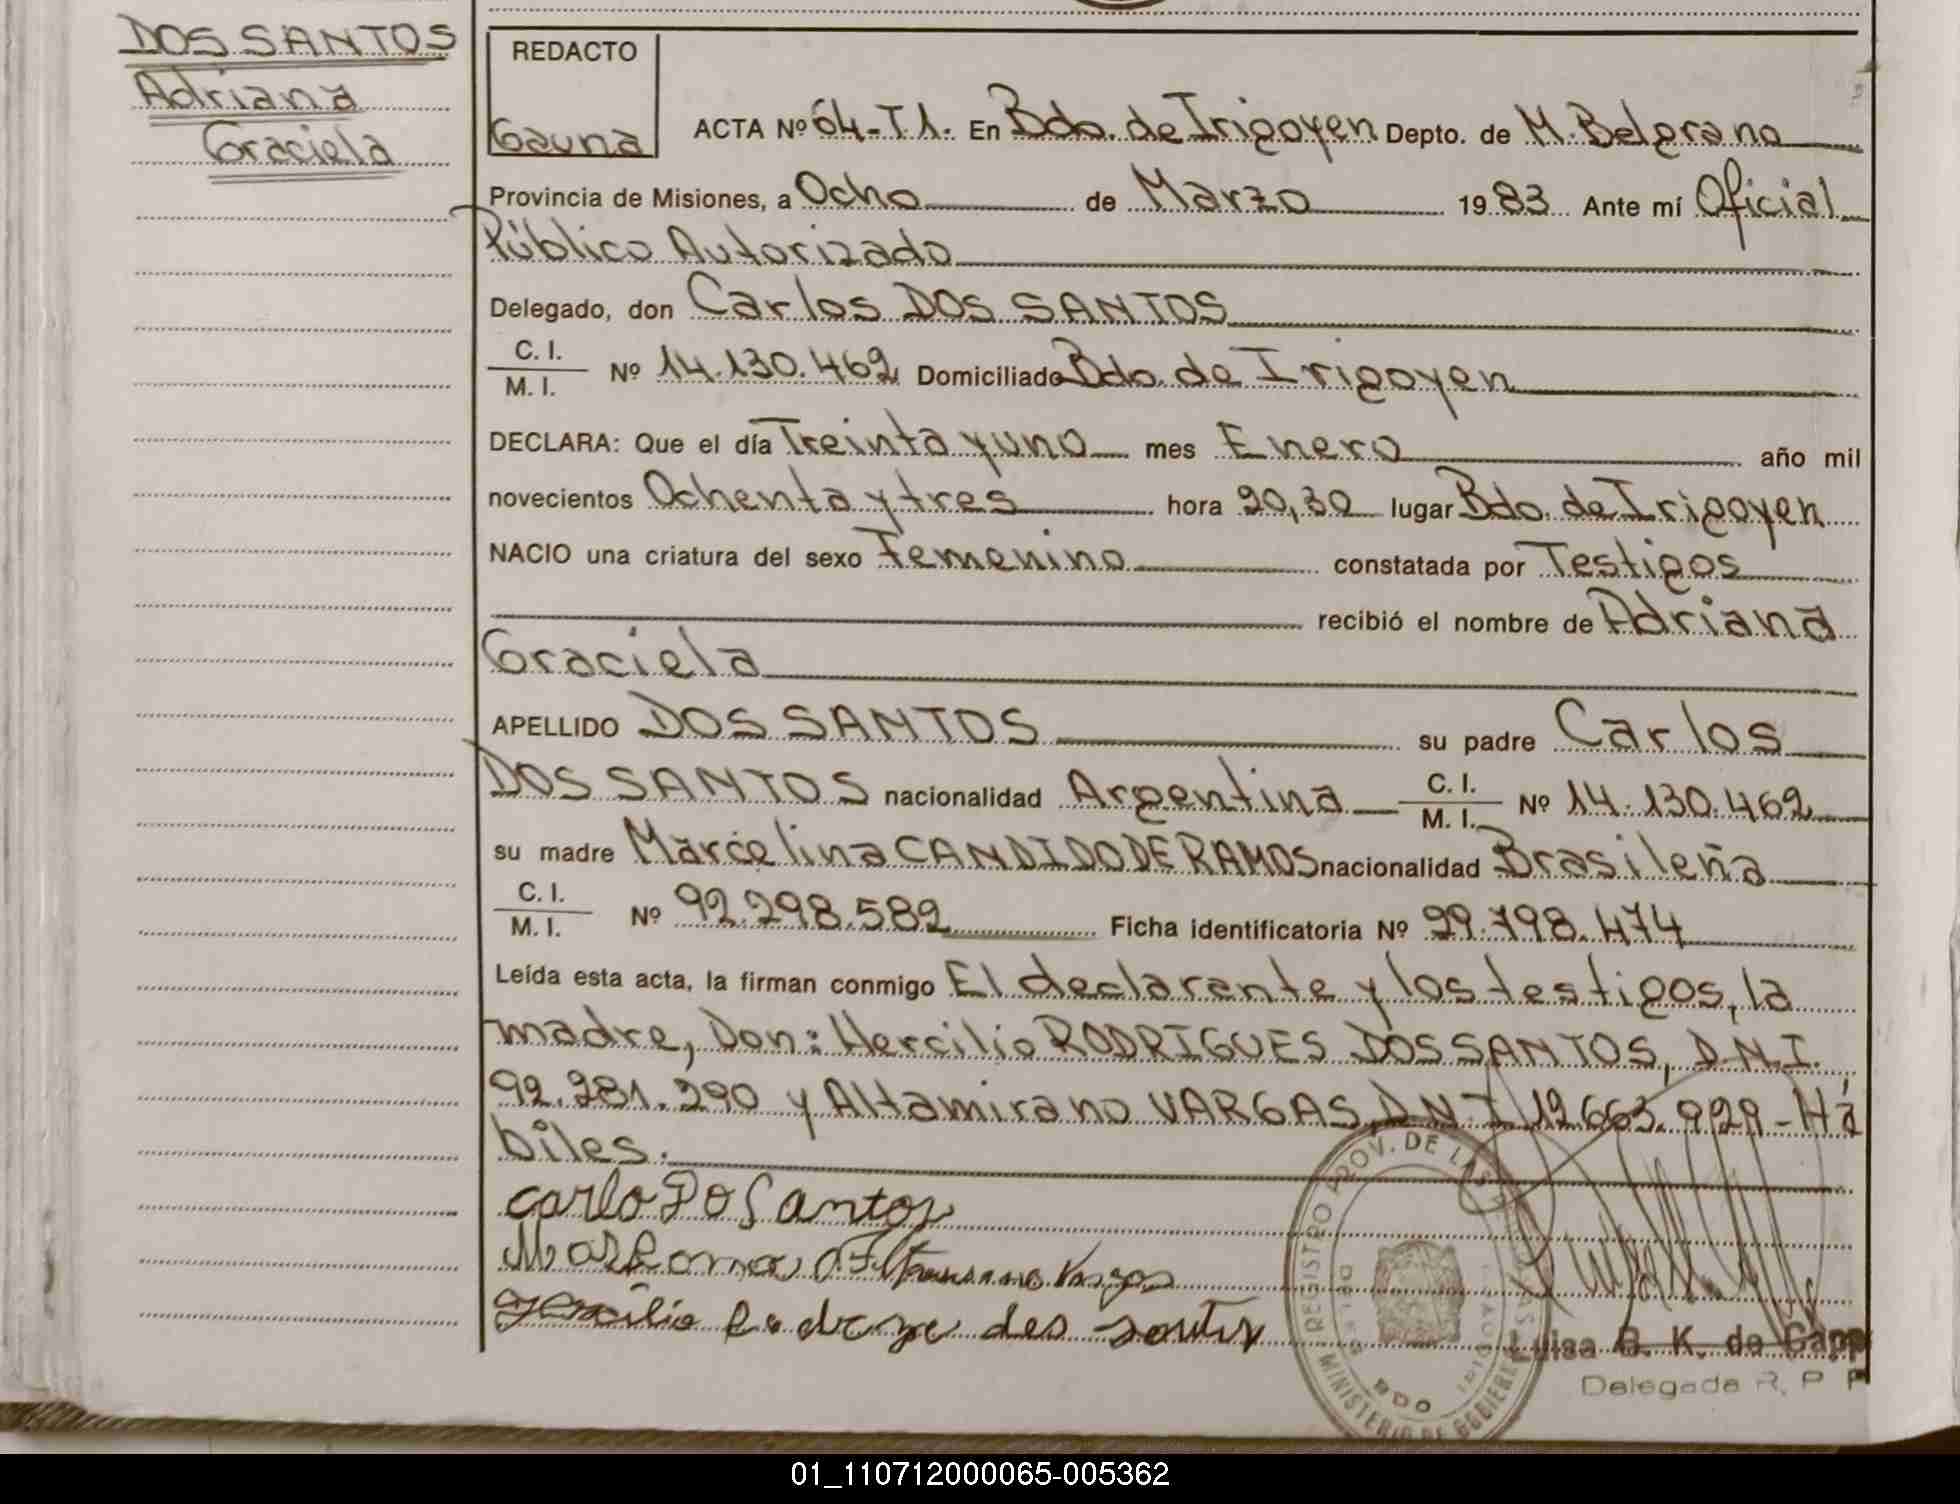 DOS SANTOS
Adriana
Graciela
REDACTO
Gauna
ACTA Nº 64-T1. En Bdo. de Irigoyen Depto. de M. Belgrano
Provincia de Misiones, a Ocho de Marzo 1983 Ante mí Oficial
Público Autorizado
Delegado, don Carlos DOS SANTOS
C. I.
M. I. Nº 14.130.462 Domiciliado Bdo. de Irigoyen
DECLARA: Que el día Treinta y uno mes Enero año mil
novecientos Ochenta y tres hora 20,30 lugar Bdo. de Irigoyen
NACIO una criatura del sexo Femenino constatada por Testigos
recibió el nombre de Adriana
Graciela
APELLIDO DOS SANTOS su padre Carlos
DOS SANTOS nacionalidad Argentina C. I. M. I. Nº 14.130.462
su madre Marcelina CANDIDO DE RAMOS nacionalidad Brasileña
C. I.
M. I. Nº 92.298.582 Ficha identificatoria Nº 29.798.474
Leída esta acta, la firman conmigo El declarante y los testigos, la
madre, Don: Hercilio RODRIGUES DOS SANTOS, D.N.I.
92.281.290 y Altamirano VARGAS D.N.I 12.663.929 - Há
biles.
Carlo DO Santos
Altamirano Vargas
REGISTRO PROV. DE LAS
MINISTERIO DE GOBIERN
BDO
Luisa B. K. de Capp
Delegada R. P. P
01_110712000065-005362